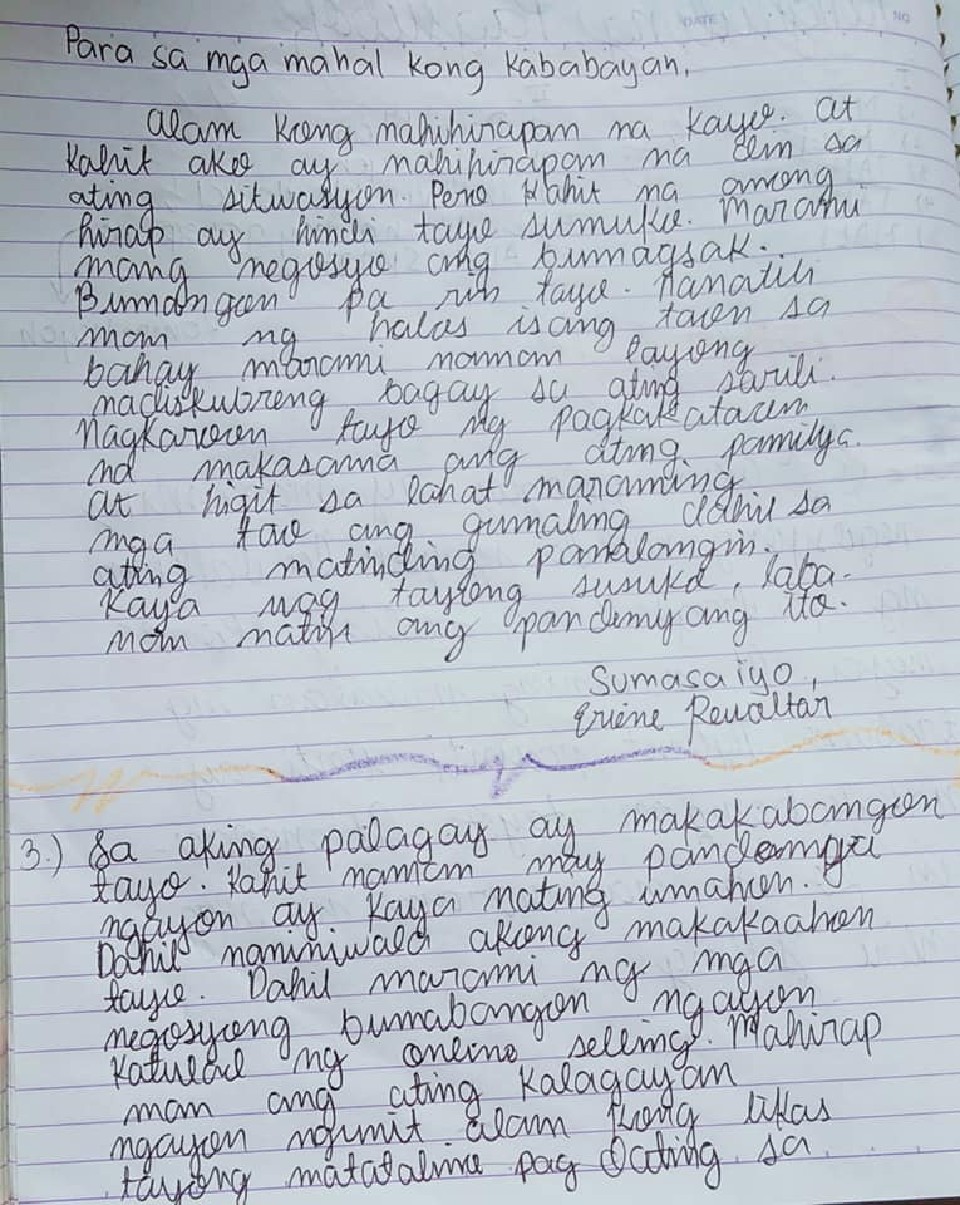 Para sa mga mahal kong kababayan,
Alam kong mahihirapan na kayo. At
kahit ako ay mahihirapan na din sa
ating sitwasyon. Pero kahit na anong
hirap ay hindi tayo sumuko. Marami
mang negosyo ang bumagsak.
Bumangon pa rin tayo. Nanatili
man ng halos isang taon sa
bahay marami naman tayong
nadiskubreng bagay sa ating sarili.
Nagkaroon tayo ng pagkakataon
na makasama ang ating pamilya.
at higit sa lahat maraming
mga tao ang gumaling dahil sa
ating matinding panalangin.
Kaya wag tayong susuko, laba-
nan natin ang pandemyang ito.
Sumasaiyo,
Eriene Revaltar
3.) Sa aking palagay ay makakabangon
tayo. Kahit namam may pandemya
ngayon ay kaya nating umahon.
Dahil naniniwala akong makakaahon
tayo. Dahil marami ng mga
negosyong bumabangon ngayon
katulad ng online selling. Mahirap
man ang ating kalagayan
ngayon ngunit alam kong likas
tayong matatalino pag dating sa